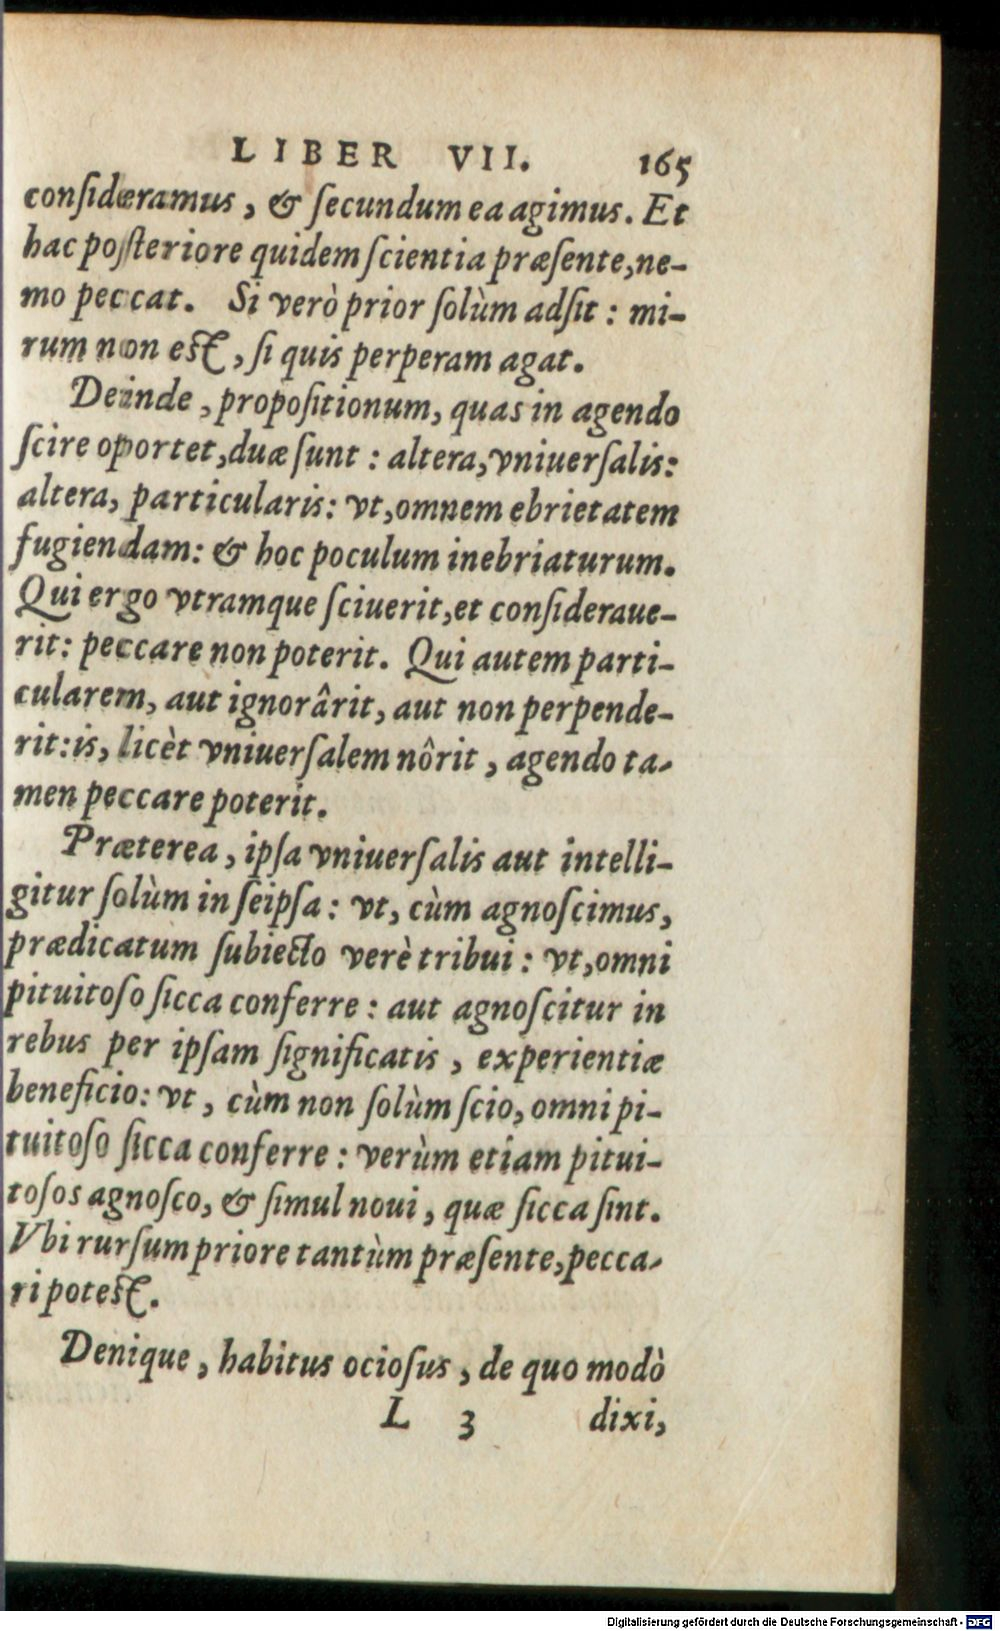 LIBER VII. 165
conſideramus, & ſecundum ea agimus. Et
hac poſteriore quidem ſcientia præſente, ne-
mo peccat. Si verò prior ſolùm adſit: mi-
rum non eſt, ſi quis perperam agat.
Deinde, propoſitionum, quas in agendo
ſcire oportet, duæ ſunt: altera, vniuerſalis:
altera, particularis: vt, omnem ebrietatem
fugiendam: & hoc poculum inebriaturum.
Qui ergo vtramque ſciuerit, et conſideraue-
rit: peccare non poterit. Qui autem parti-
cularem, aut ignorârit, aut non perpende-
rit: is, licèt vniuerſalem nôrit, agendo ta-
men peccare poterit.
Præterea, ipſa vniuerſalis aut intelli-
gitur ſolùm in ſeipſa: vt, cùm agnoſcimus,
prædicatum ſubiecto verè tribui: vt, omni
pituitoſo ſicca conferre: aut agnoſcitur in
rebus per ipſam ſignificatis, experientiæ
beneficio: vt, cùm non ſolùm ſcio, omni pi-
tuitoſo ſicca conferre: verùm etiam pitui-
toſos agnoſco, & ſimul noui, quæ ſicca ſint.
Vbi rurſum priore tantùm præſente, pecca-
ri poteſt.
Denique, habitus ocioſus, de quo modò
L 3 dixi,
Digitalisierung gefördert durch die Deutsche Forschungsgemeinschaft - DFG